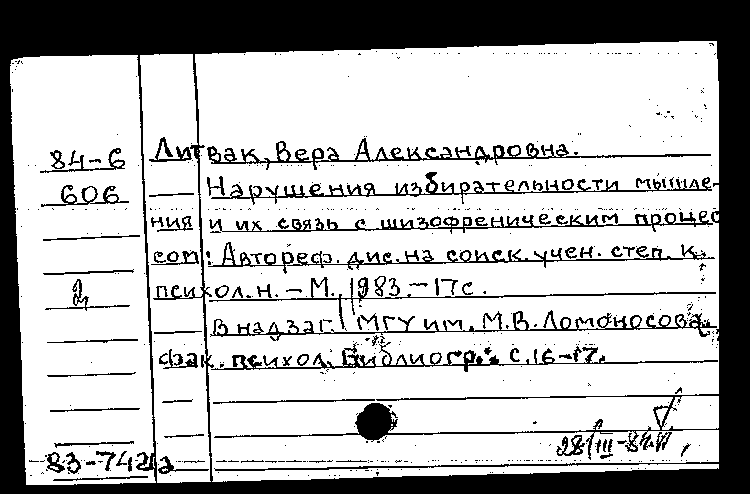 84-6 Литвак, Вера Александровна.
606 Нарушения избирательности мышле-
ния и их связь с шизофреническим процес
сом: Автореф. дис. на соиск. учен. степ. к.
2 психол. н. - М., 1983. - 17 с.
В надзаг. МГУ им. М.В. Ломоносова.
фак. психол. Библиогр.: с. 16-17.
28/III-84
83-7421а